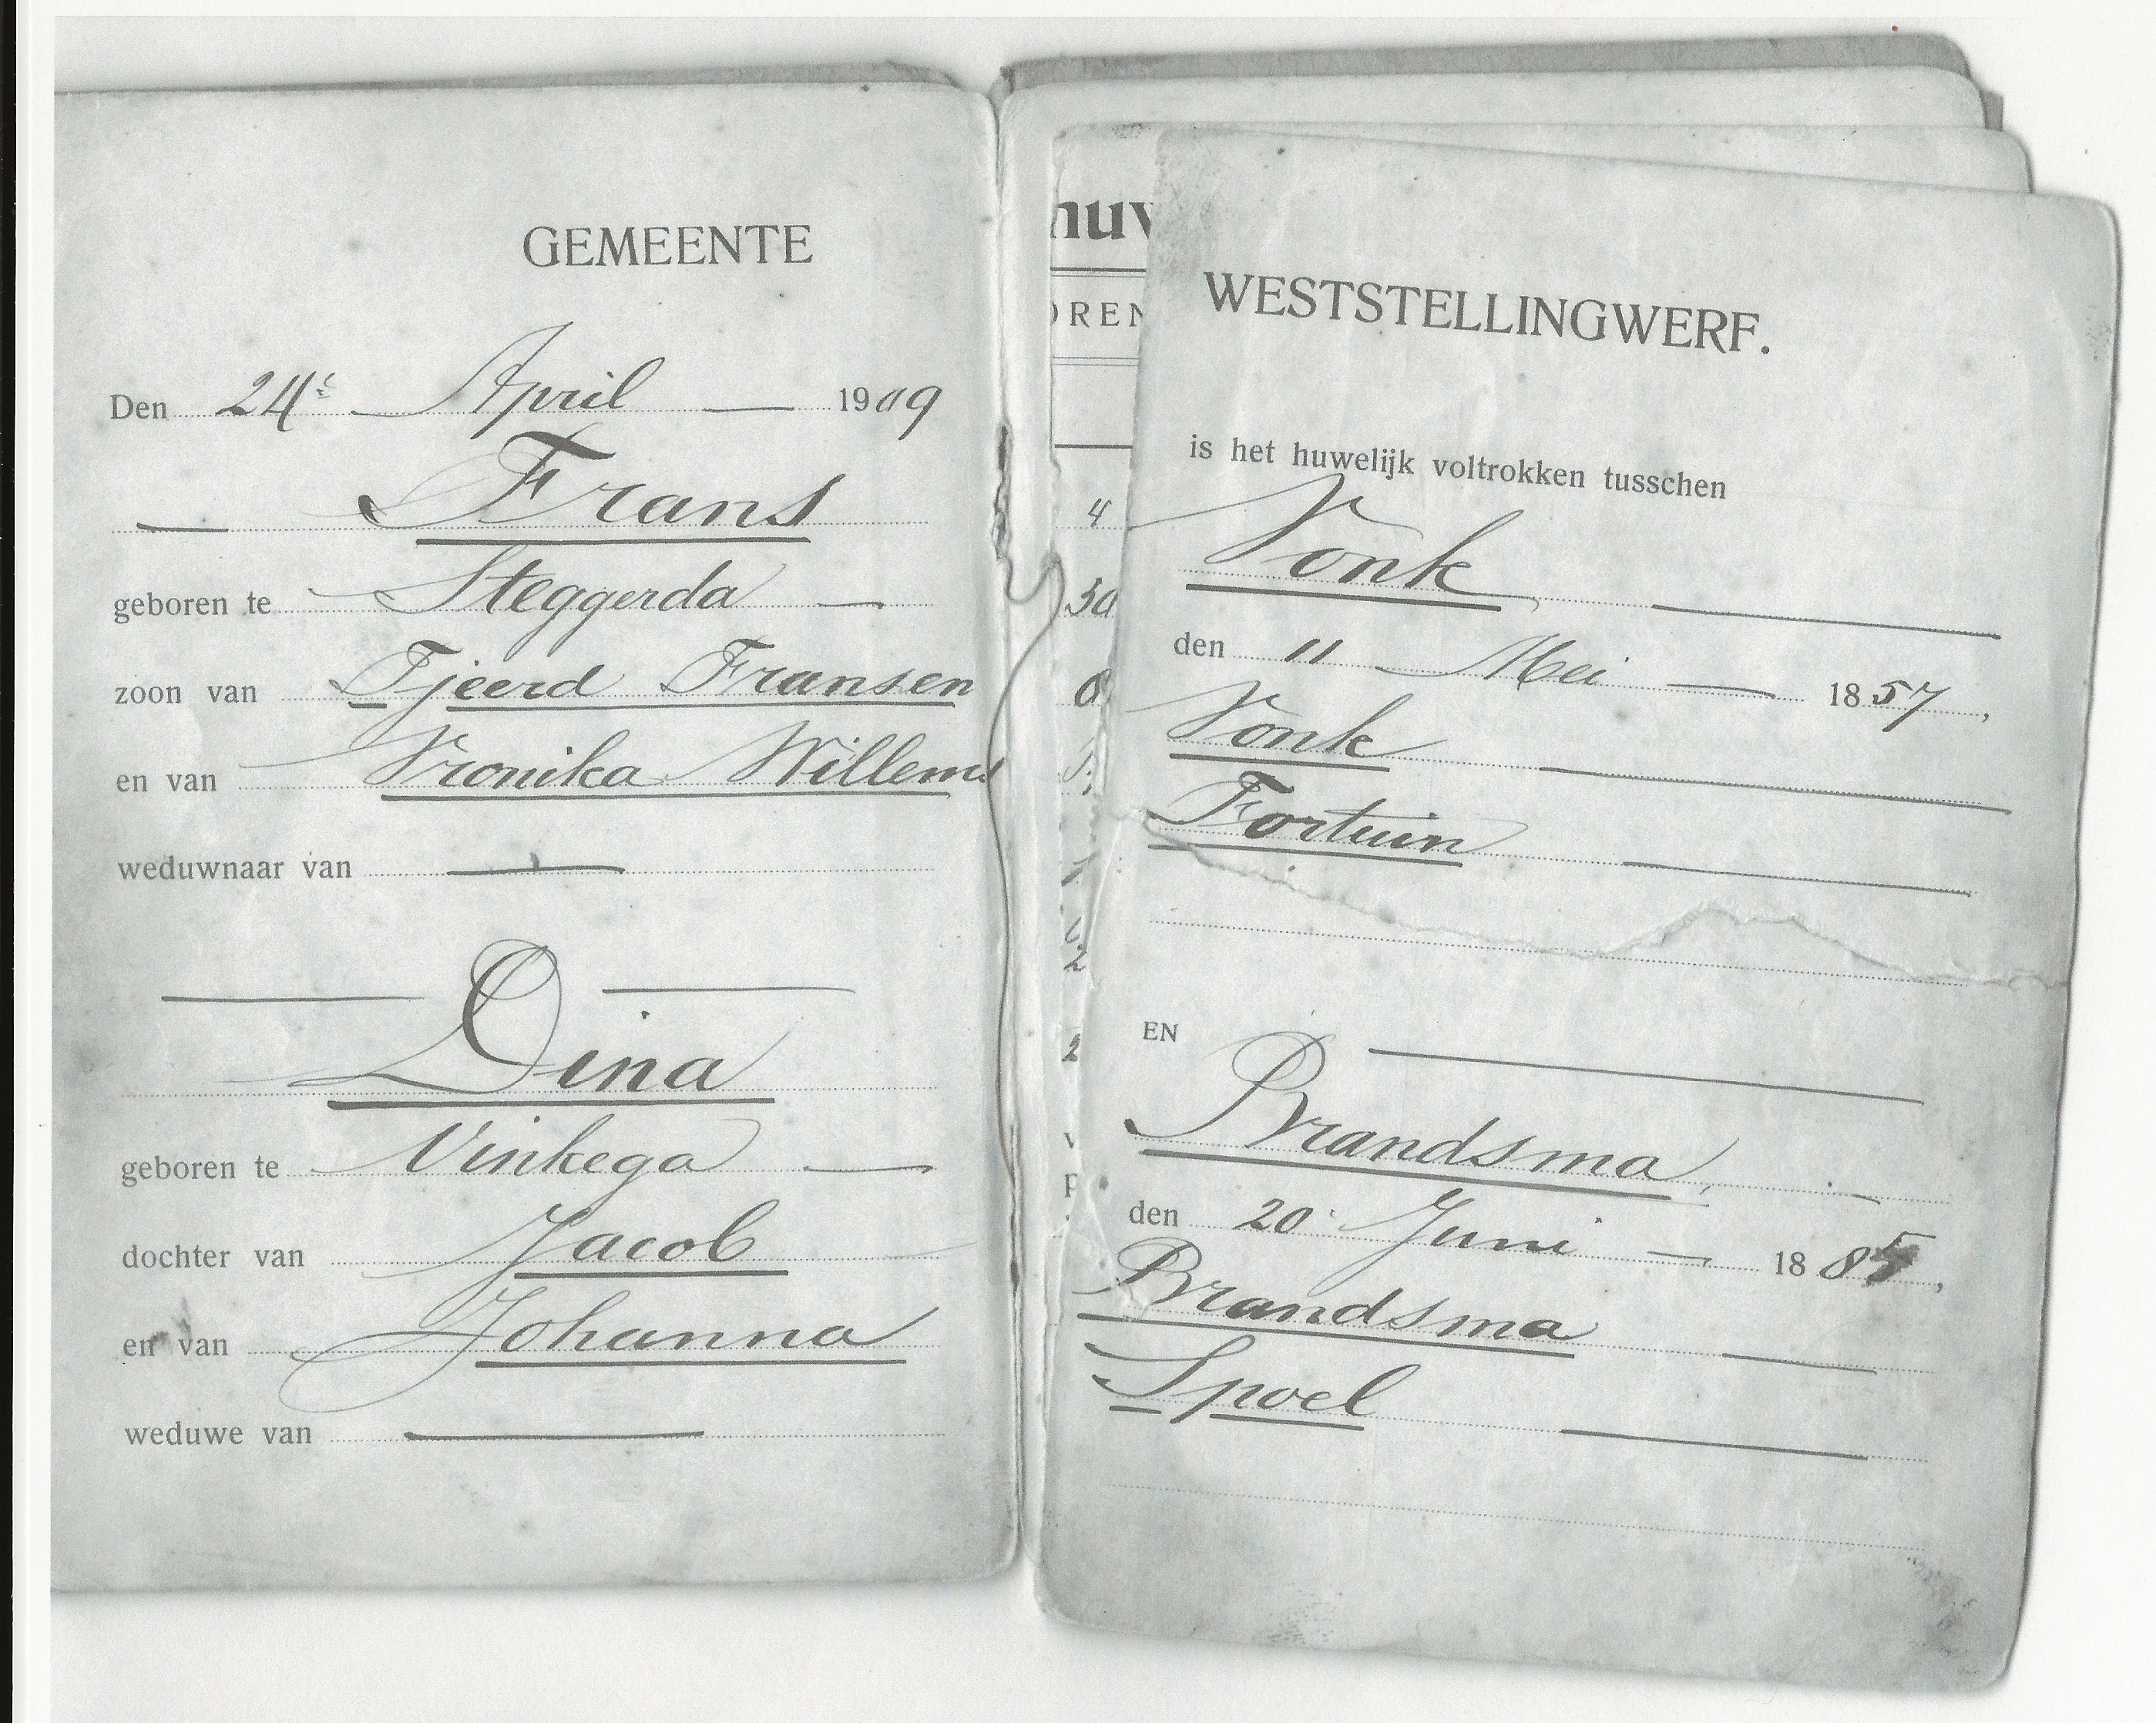 GEMEENTE
Den 24e April 1909
Frans
geboren te Steggerda
zoon van Tjeerd Fransen
en van Vronika Willems
weduwnaar van
Dina
geboren te Vinkega
dochter van Jacob
en van Johanna
weduwe van
WESTSTELLINGWERF.
is het huwelijk voltrokken tusschen
Vonk
den 11 Mei 1857,
Vonk
Fortuin
EN
Brandsma,
den 20 Juni 1885,
Brandsma
Spoel